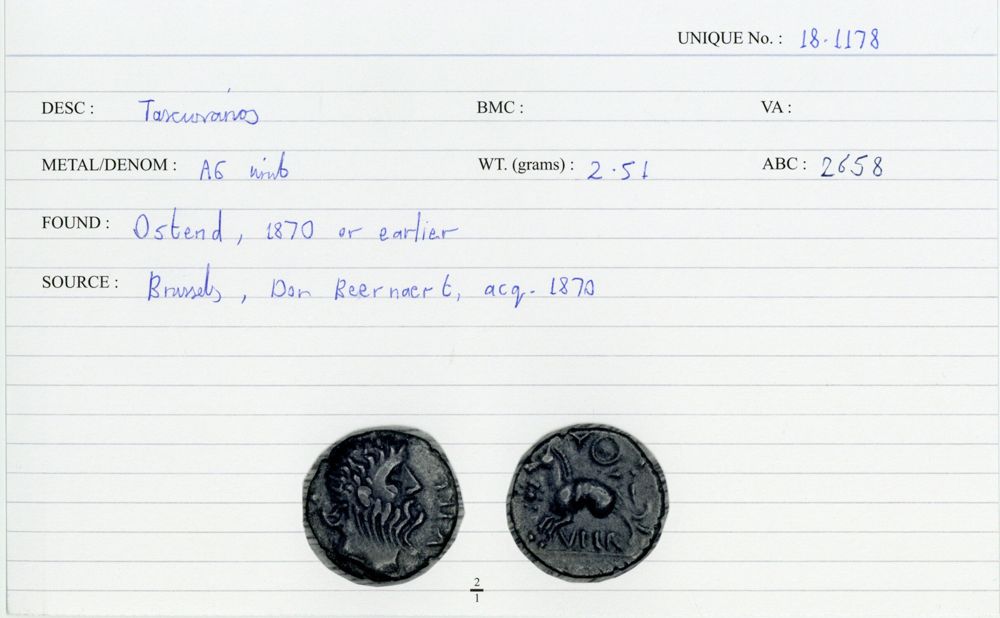 UNIQUE No. : 18.1178
DESC : Tasciovanos BMC : VA :
METAL/DENOM : AE unit WT. (grams) : 2.51 ABC : 2658
FOUND : Ostend, 1870 or earlier
SOURCE : Brussels, Don Beernaert, acq. 1870
VIIR
2
1